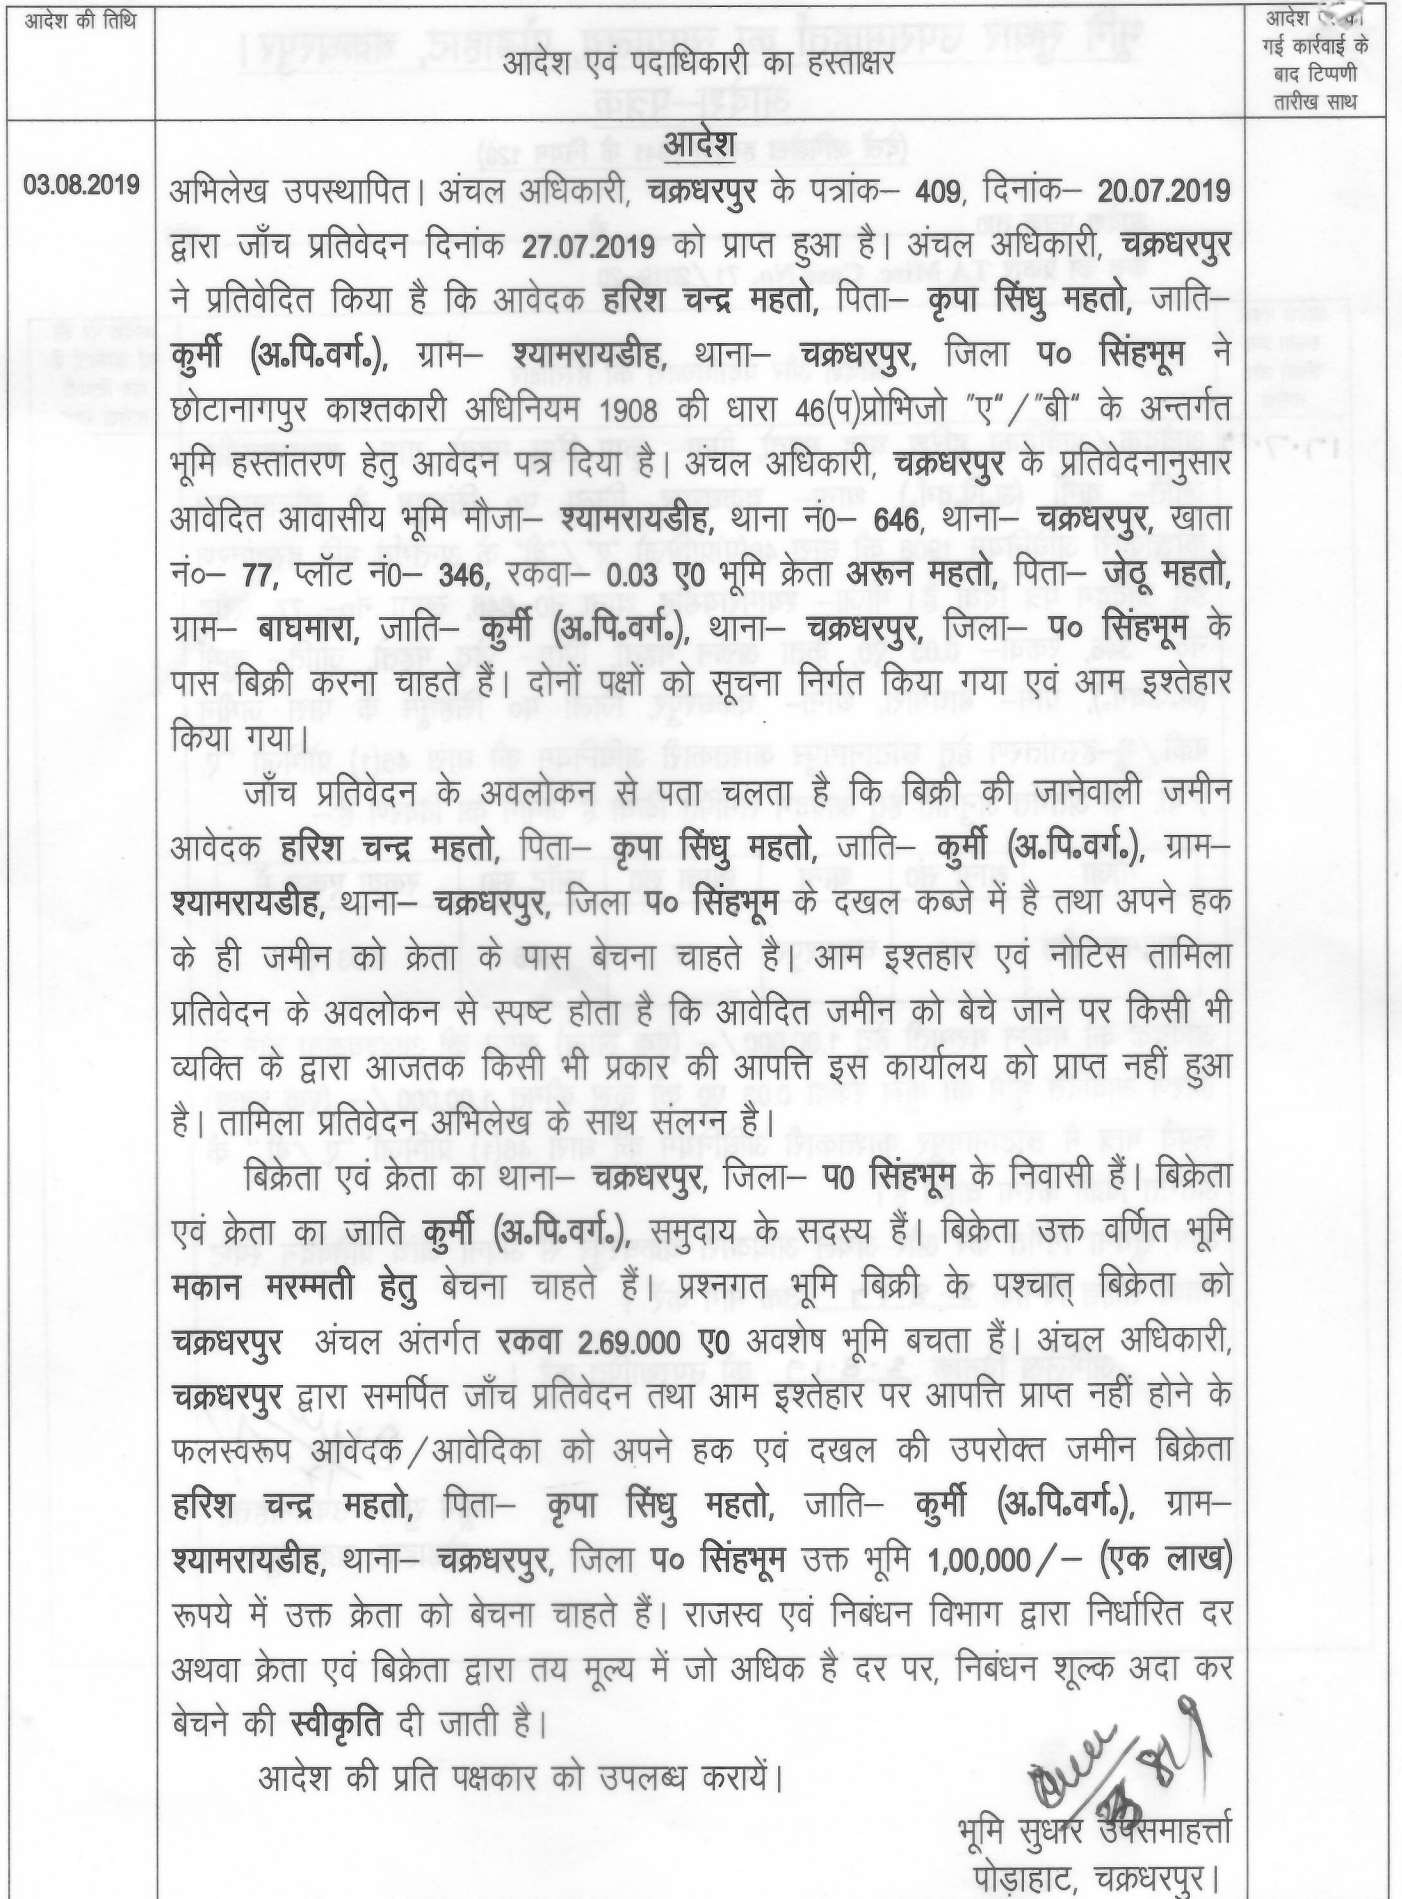 आदेश की तिथि
आदेश एवं पदाधिकारी का हस्ताक्षर
आदेश
गई कार्रवाई के
बाद टिप्पणी
तारीख साथ
आदेश
03.08.2019
अभिलेख उपस्थापित। अंचल अधिकारी, चक्रधरपुर के पत्रांक– 409, दिनांक– 20.07.2019
द्वारा जाँच प्रतिवेदन दिनांक 27.07.2019 को प्राप्त हुआ है। अंचल अधिकारी, चक्रधरपुर
ने प्रतिवेदित किया है कि आवेदक हरिश चन्द्र महतो, पिता– कृपा सिंधु महतो, जाति–
कुर्मी (अ.पि.वर्ग.), ग्राम– श्यामरायडीह, थाना– चक्रधरपुर, जिला प० सिंहभूम ने
छोटानागपुर काश्तकारी अधिनियम 1908 की धारा 46(प)प्रोभिजो "ए"/"बी" के अन्तर्गत
भूमि हस्तांतरण हेतु आवेदन पत्र दिया है। अंचल अधिकारी, चक्रधरपुर के प्रतिवेदनानुसार
आवेदित आवासीय भूमि मौजा– श्यामरायडीह, थाना नं0– 646, थाना– चक्रधरपुर, खाता
नं०– 77, प्लॉट नं0– 346, रकवा– 0.03 ए0 भूमि क्रेता अरून महतो, पिता– जेठू महतो,
ग्राम– बाघमारा, जाति– कुर्मी (अ.पि.वर्ग.), थाना– चक्रधरपुर, जिला– प० सिंहभूम के
पास बिक्री करना चाहते हैं। दोनों पक्षों को सूचना निर्गत किया गया एवं आम इश्तेहार
किया गया।
जाँच प्रतिवेदन के अवलोकन से पता चलता है कि बिक्री की जानेवाली जमीन
आवेदक हरिश चन्द्र महतो, पिता– कृपा सिंधु महतो, जाति– कुर्मी (अ.पि.वर्ग.), ग्राम–
श्यामरायडीह, थाना– चक्रधरपुर, जिला प० सिंहभूम के दखल कब्जे में है तथा अपने हक
के ही जमीन को क्रेता के पास बेचना चाहते है। आम इश्तहार एवं नोटिस तामिला
प्रतिवेदन के अवलोकन से स्पष्ट होता है कि आवेदित जमीन को बेचे जाने पर किसी भी
व्यक्ति के द्वारा आजतक किसी भी प्रकार की आपत्ति इस कार्यालय को प्राप्त नहीं हुआ
है। तामिला प्रतिवेदन अभिलेख के साथ संलग्न है।
बिक्रेता एवं क्रेता का थाना– चक्रधरपुर, जिला– प0 सिंहभूम के निवासी हैं। बिक्रेता
एवं क्रेता का जाति कुर्मी (अ.पि.वर्ग.), समुदाय के सदस्य हैं। बिक्रेता उक्त वर्णित भूमि
मकान मरम्मती हेतु बेचना चाहते हैं। प्रश्नगत भूमि बिक्री के पश्चात् बिक्रेता को
चक्रधरपुर अंचल अंतर्गत रकवा 2.69.000 ए0 अवशेष भूमि बचता हैं। अंचल अधिकारी,
चक्रधरपुर द्वारा समर्पित जाँच प्रतिवेदन तथा आम इश्तेहार पर आपत्ति प्राप्त नहीं होने के
फलस्वरूप आवेदक/आवेदिका को अपने हक एवं दखल की उपरोक्त जमीन बिक्रेता
हरिश चन्द्र महतो, पिता– कृपा सिंधु महतो, जाति– कुर्मी (अ.पि.वर्ग.), ग्राम–
श्यामरायडीह, थाना– चक्रधरपुर, जिला प० सिंहभूम उक्त भूमि 1,00,000/– (एक लाख)
रूपये में उक्त क्रेता को बेचना चाहते हैं। राजस्व एवं निबंधन विभाग द्वारा निर्धारित दर
अथवा क्रेता एवं बिक्रेता द्वारा तय मूल्य में जो अधिक है दर पर, निबंधन शूल्क अदा कर
बेचने की स्वीकृति दी जाती है।
आदेश की प्रति पक्षकार को उपलब्ध करायें।
भूमि सुधार उपसमाहर्त्ता
पोड़ाहाट, चक्रधरपुर।